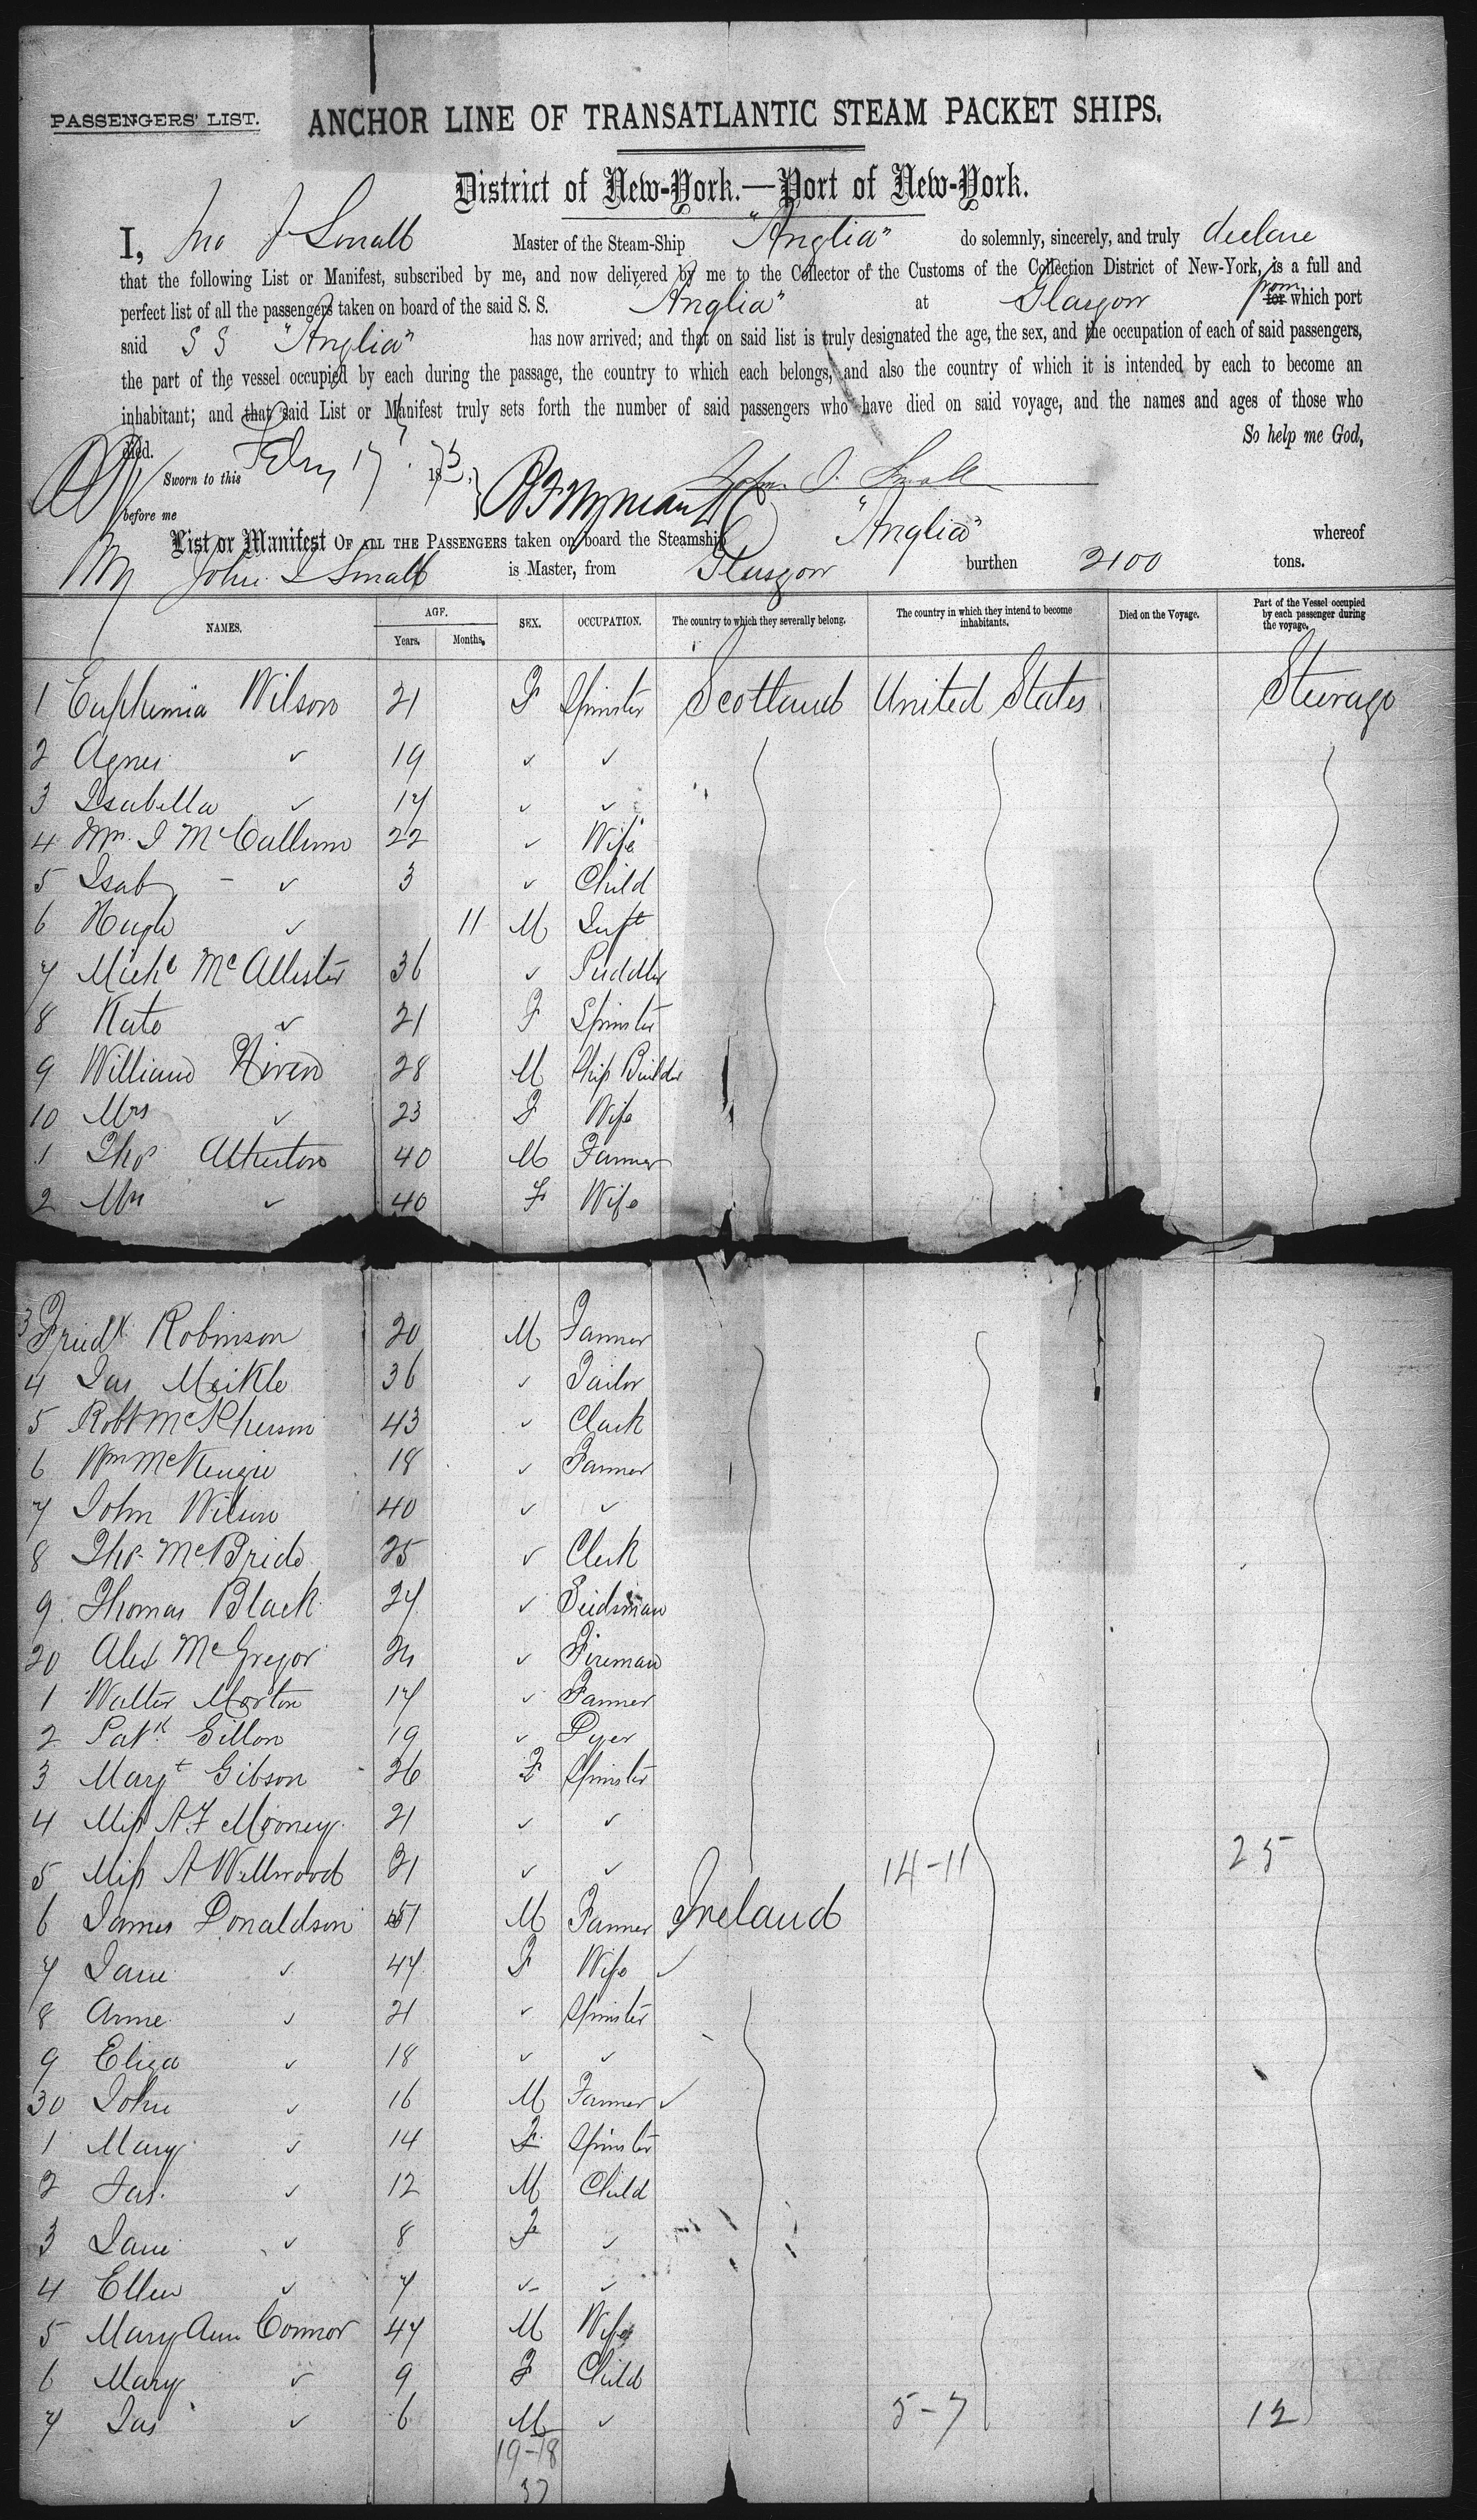 PASSENGERS' LIST. ANCHOR LINE OF TRANSATLANTIC STEAM PACKET SHIPS.
District of New-York.—Port of New-York.
I, Jno J Small Master of the Steam-Ship "Anglia" do solemnly, sincerely, and truly declare
that the following List or Manifest, subscribed by me, and now delivered by me to the Collector of the Customs of the Collection District of New-York, is a full and
perfect list of all the passengers taken on board of the said S. S. "Anglia" at Glasgow from for which port
said S S "Anglia" has now arrived; and that on said list is truly designated the age, the sex, and the occupation of each of said passengers,
the part of the vessel occupied by each during the passage, the country to which each belongs, and also the country of which it is intended by each to become an
inhabitant; and that said List or Manifest truly sets forth the number of said passengers who have died on said voyage, and the names and ages of those who
died. So help me God,
Sworn to this Feby 17 1873. John J. Small
before me
List or Manifest OF ALL THE PASSENGERS taken on board the Steamship "Anglia" whereof
John J Small is Master, from Glasgow burthen 2100 tons.
NAMES. AGE. Years. Months. SEX. OCCUPATION. The country to which they severally belong. The country in which they intend to become inhabitants. Died on the Voyage. Part of the Vessel occupied by each passenger during the voyage.
1 Euphemia Wilson 21 F Spinster Scotland United States Steerage
2 Agnes ✓ 19 ✓ ✓
3 Isabella ✓ 17 ✓ ✓
4 Mrs. J McCallum 22 ✓ Wife
5 Isab ✓ 3 ✓ Child
6 Hugh ✓ 11 M Inft
7 Michl McAllister 36 ✓ Puddler
8 Kate ✓ 21 F Spinster
9 William Niven 28 M Ship Builder
10 Mrs ✓ 23 F Wife
1 Thos Atherton 40 M Farmer
2 Mrs ✓ 40 F Wife
3 Friedk Robinson 20 M Farmer
4 Jas Meikle 36 ✓ Tailor
5 Robt McPherson 43 ✓ Clerk
6 Wm McKenzie 18 ✓ Farmer
7 John Wilson 40 ✓ ✓
8 Thos McBride 25 ✓ Clerk
9 Thomas Black 27 ✓ Seedsman
20 Alex McGregor 24 ✓ Fireman
1 Walter Morton 17 ✓ Farmer
2 Patk Gillon 19 ✓ Dyer
3 Margt Gibson 26 F Spinster
4 Miss A F Mooney 21 ✓ ✓
5 Miss A Wellwood 21 ✓ ✓ 14-11 25
6 James Donaldson 51 M Farmer Ireland
7 Jane ✓ 47 F Wife ✓
8 Anne ✓ 21 ✓ Spinster
9 Eliza ✓ 18 ✓ ✓
30 John ✓ 16 M Farmer ✓
1 Mary ✓ 14 F Spinster
2 Jas. ✓ 12 M Child
3 Jane ✓ 8 F ✓
4 Ellen ✓ 7 ✓ ✓
5 Mary Ann Connor 47 M Wife
6 Mary ✓ 9 F Child
7 Jas ✓ 6 M ✓ 5-7 12
19-18
37